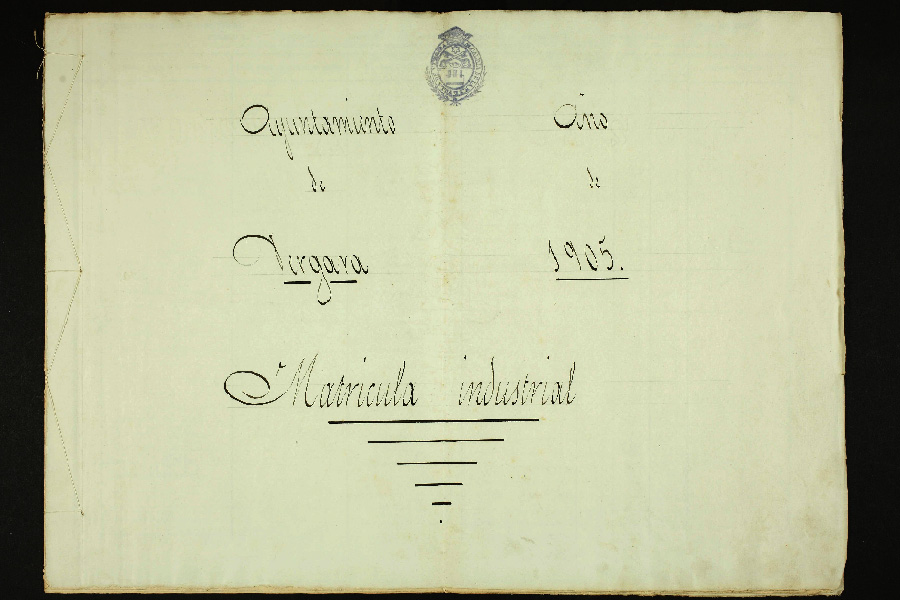 Ayuntamiento
de
Vergara
Año
de
1905.
Matricula industrial